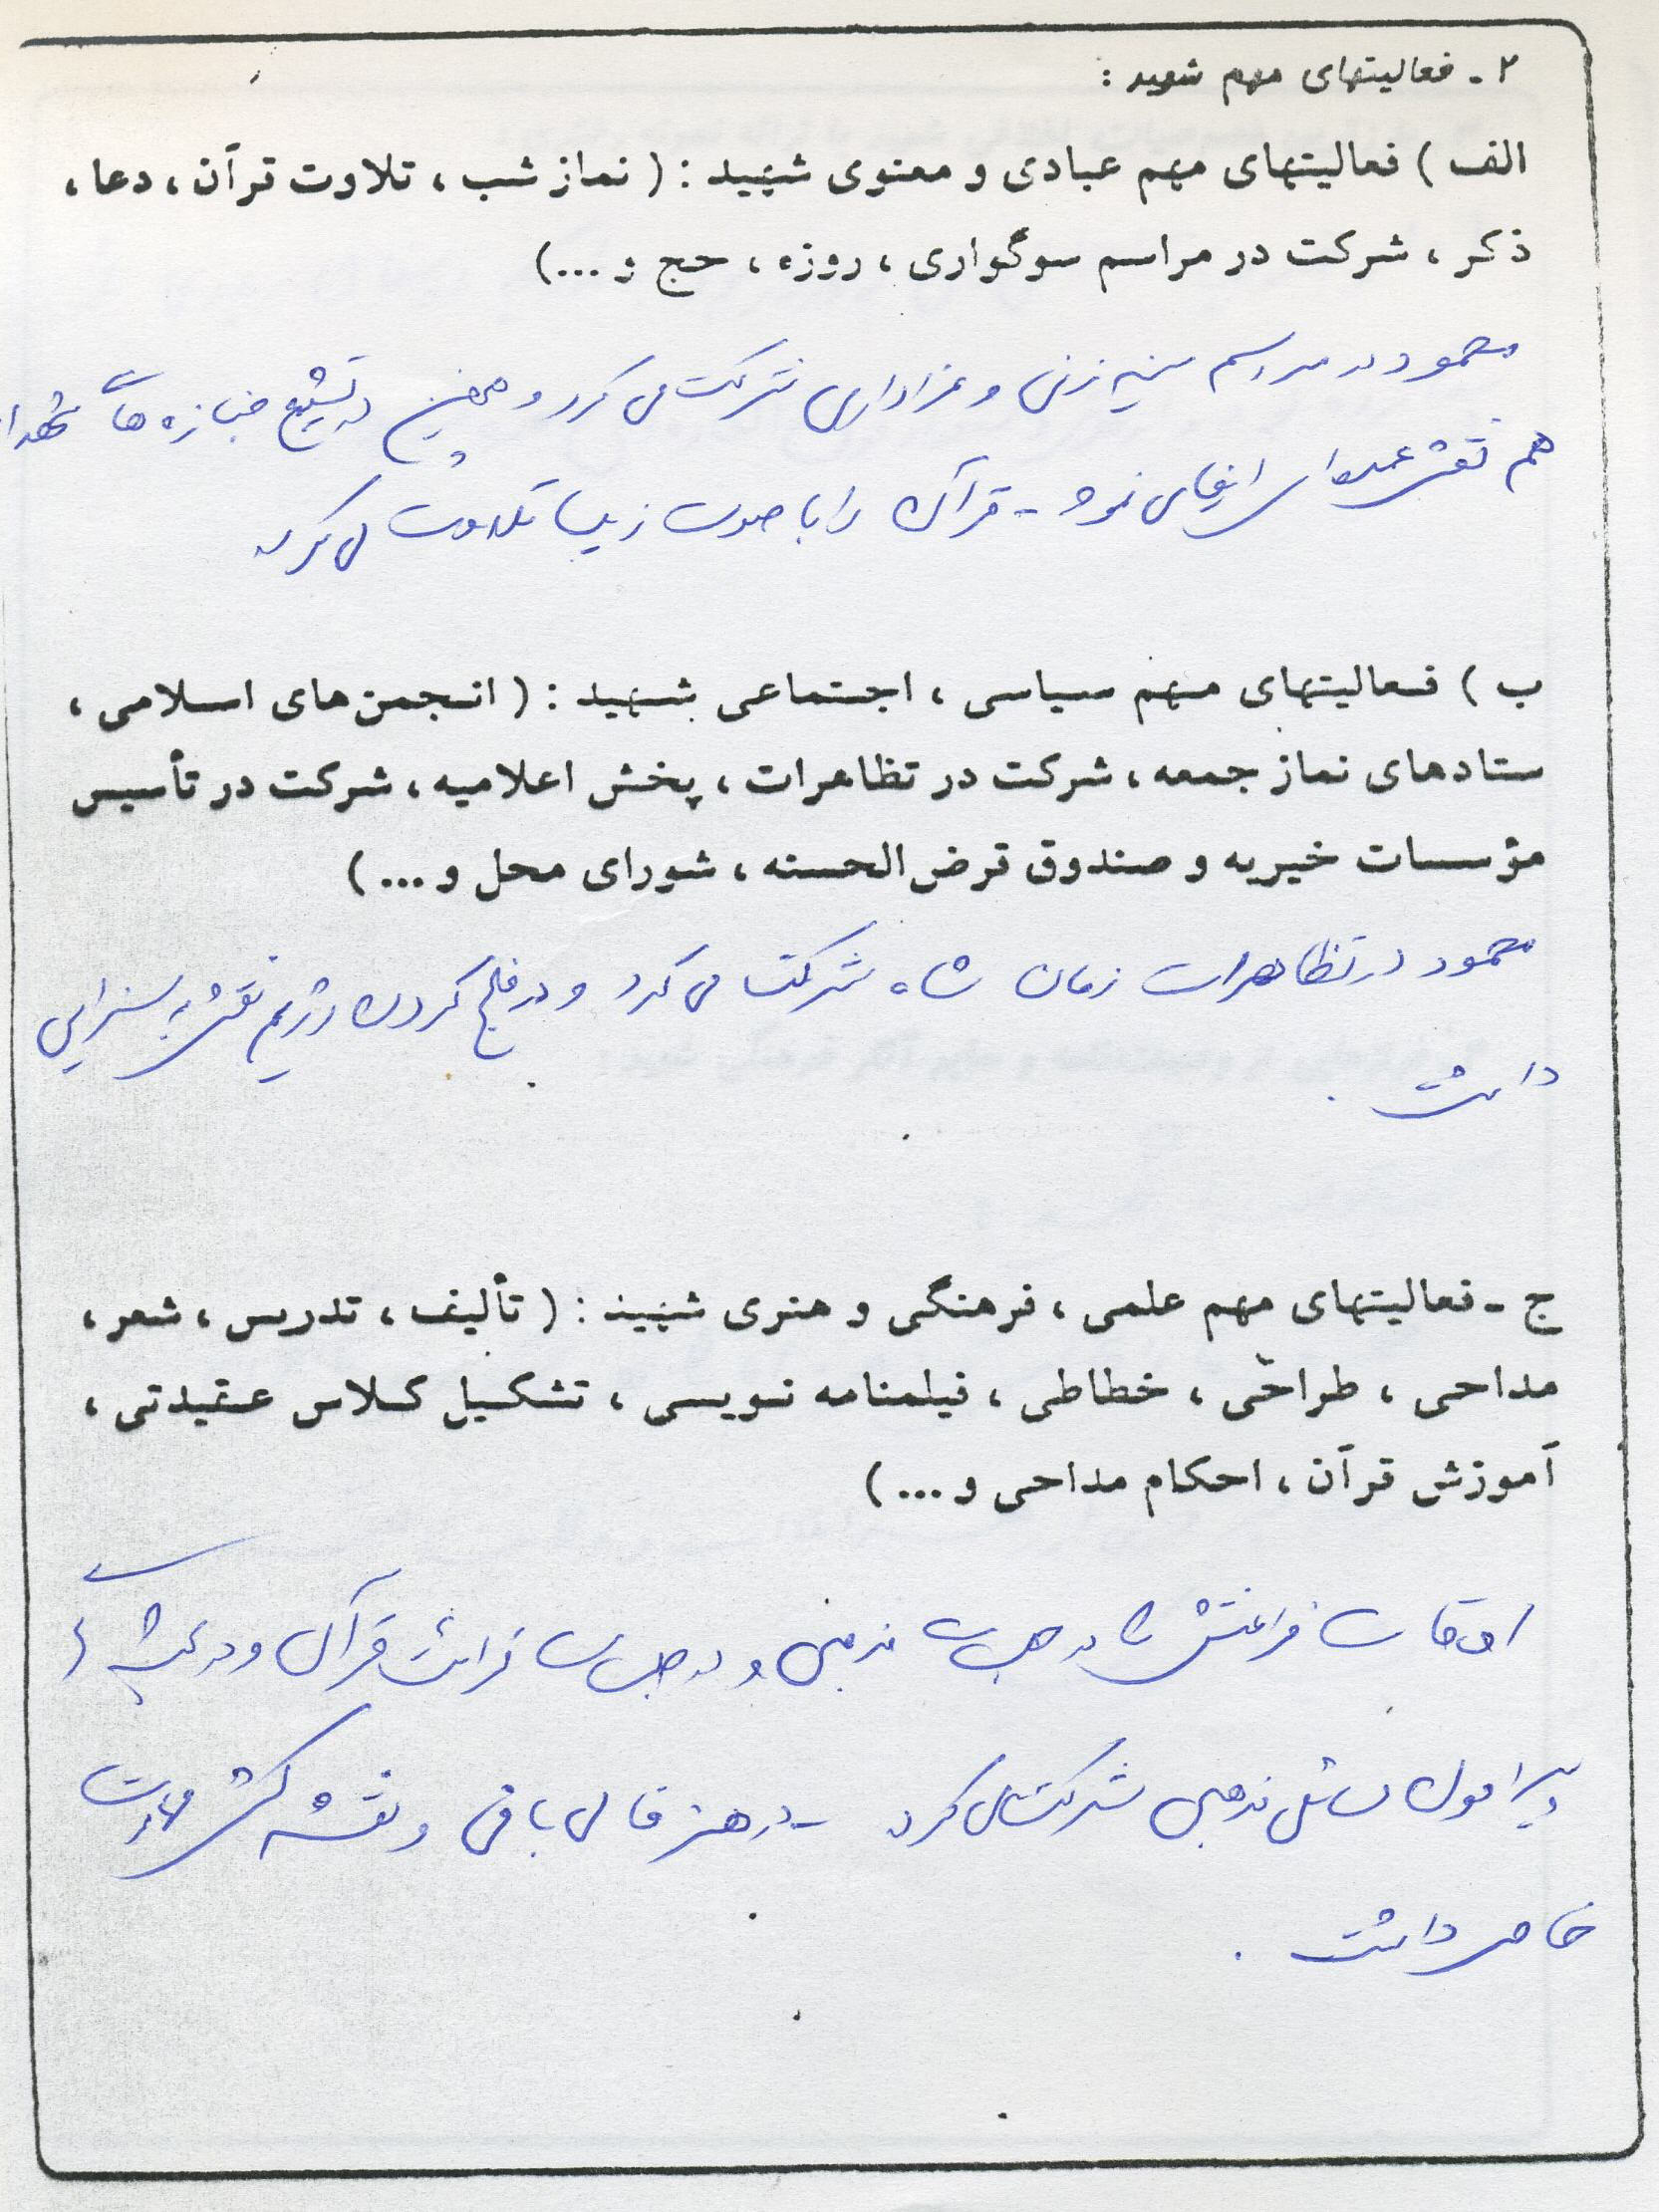 ۲ - فعالیتهای مهم شهید :
الف ) فعالیتهای مهم عبادی و معنوی شهید : ( نماز شب ، تلاوت قرآن ، دعا ،
ذکر ، شرکت در مراسم سوگواری ، روزه ، حج و ...)
محمود در مراسم سینه زنی و عزاداری شرکت می کرد و همچنین در تشییع جنازه های شهدا
هم نقش عمده ای ایفا می نمود - قرآن را با صوت زیبا تلاوت می کرد
ب ) فعالیتهای مهم سیاسی ، اجتماعی شهید : ( انجمن های اسلامی ،
ستادهای نماز جمعه ، شرکت در تظاهرات ، پخش اعلامیه ، شرکت در تأسیس
مؤسسات خیریه و صندوق قرض الحسنه ، شورای محل و ... )
محمود در تظاهرات زمان شاه شرکت می کرد و در فلج کردن رژیم نقش بسزایی
داشت .
ج - فعالیتهای مهم علمی ، فرهنگی و هنری شهید : ( تألیف ، تدریس ، شعر ،
مداحی ، طراحی ، خطاطی ، فیلمنامه نویسی ، تشکیل کلاس عقیدتی ،
آموزش قرآن ، احکام مداحی و ... )
اوقات فراغتش را در جلسات مذهبی و در جلسات قرائت قرآن و در
پیرامون مسائل مذهبی شرکت می کرد - در هنر قالی بافی و نقشه کشی مهارت
خاصی داشت .